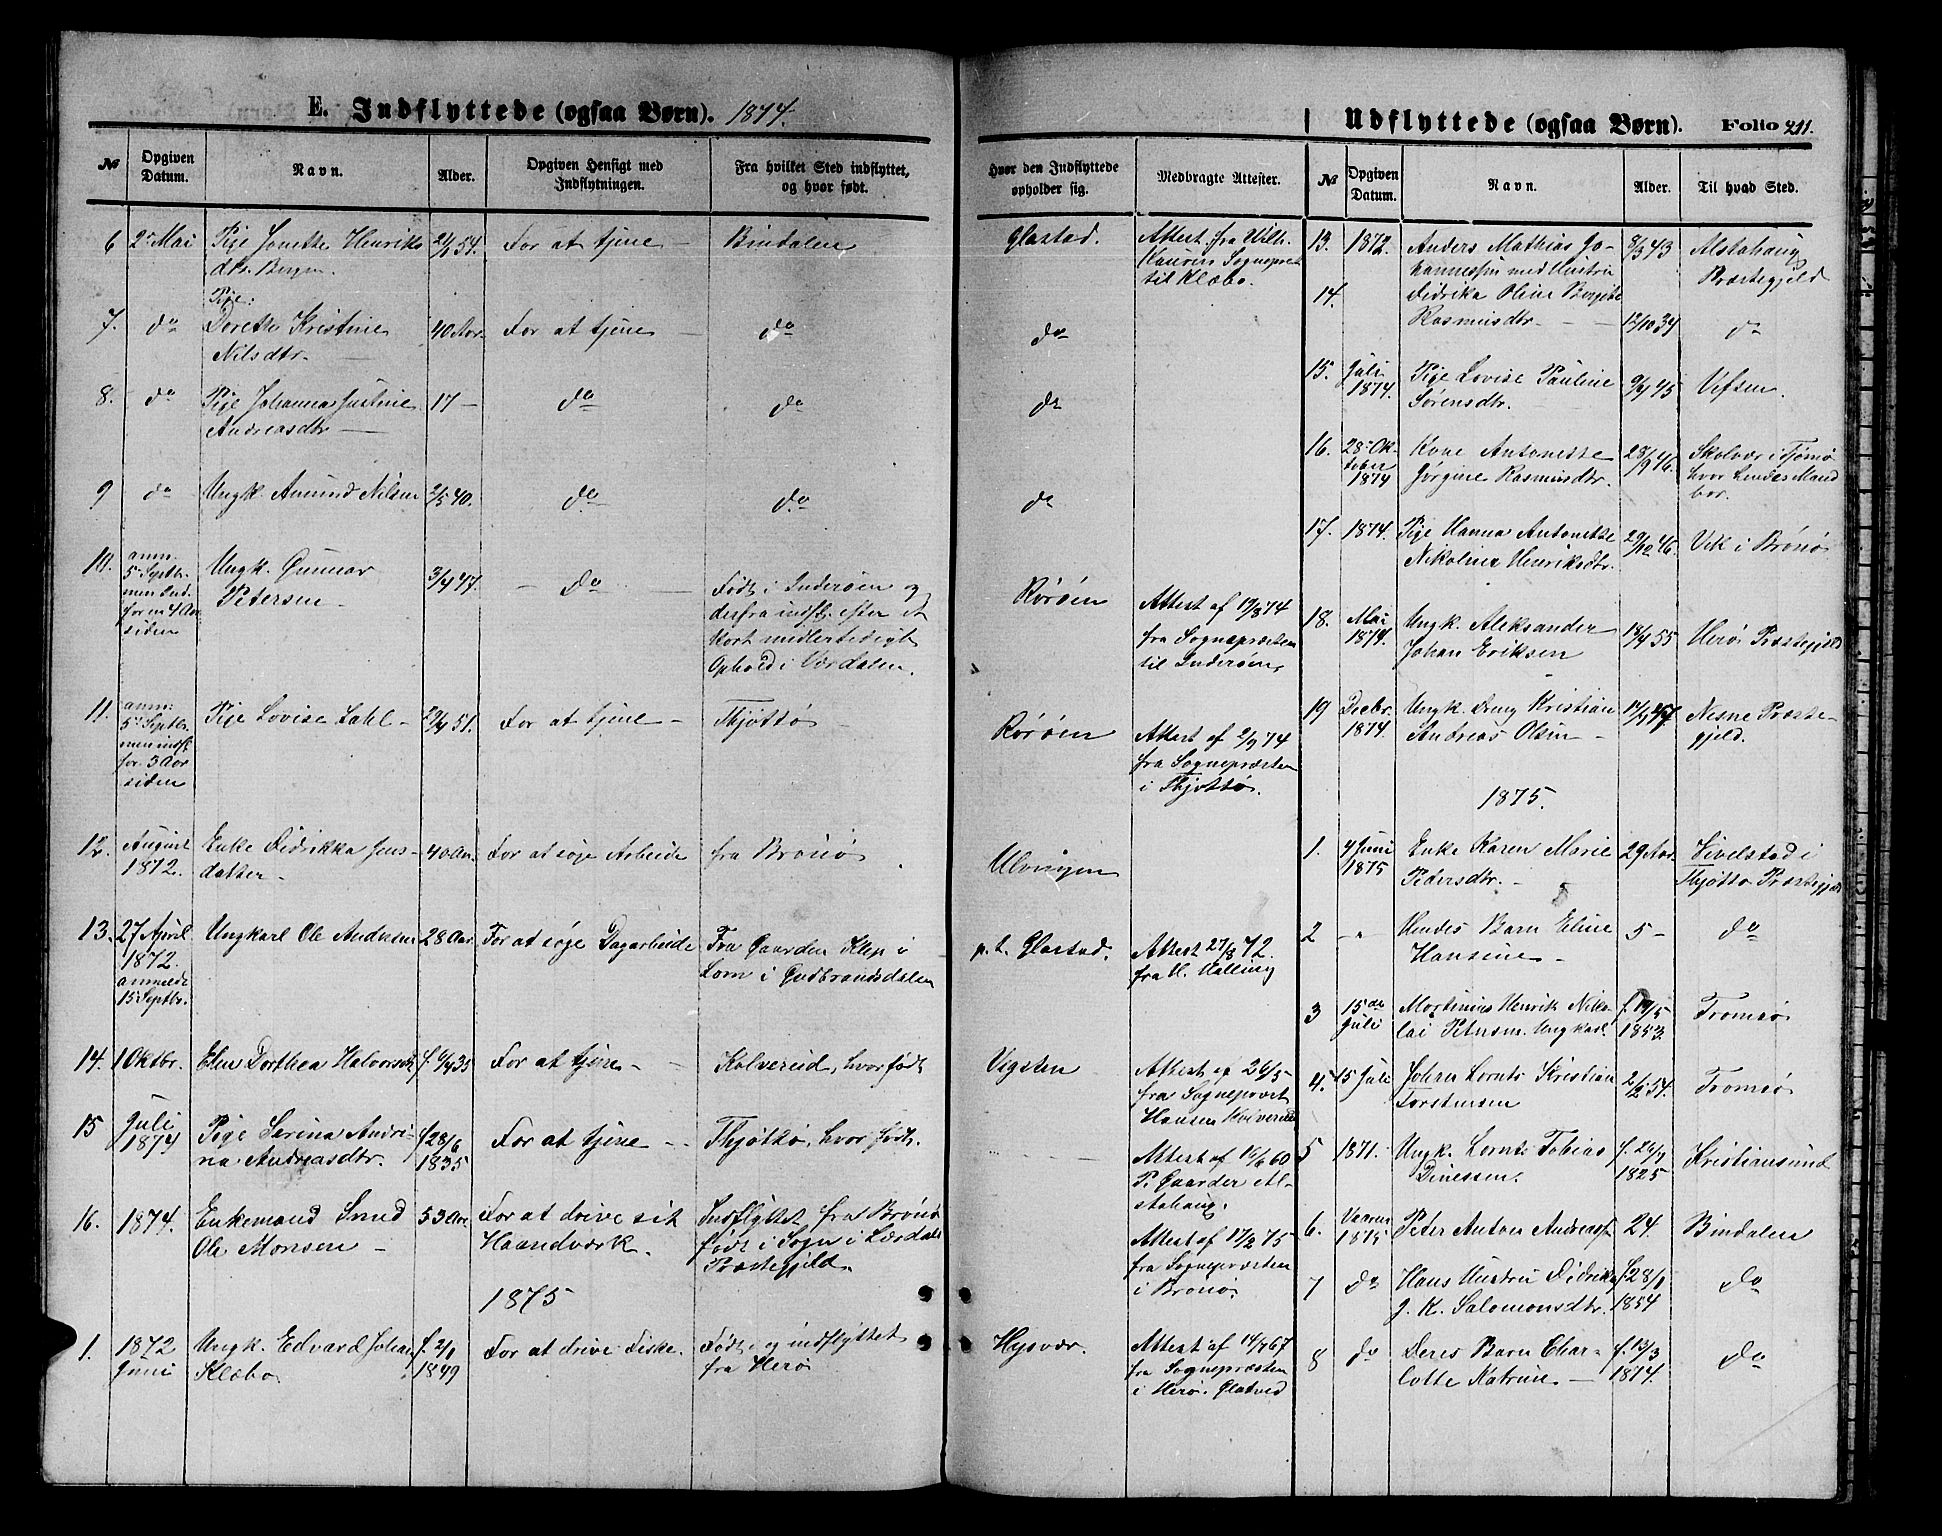 E. Indflyttede (ogsaa Børn). 1874.
№ Opgiven Datum. Navn. Alder. Opgiven Hensigt med Indflytningen. Fra hvilket Sted indflyttet, og hvor født.
Hvor den Indflyttede opholder sig. Medbragte Attester.
6 2den Mai Pige Jonette Henriks 54. For at tjene — Bindalen Glastad. Attest fra Wilh.
dtr. Bergen Sognepræst
til Klæbo.
Pige:
7. do Dorethe Kristine 40 Aar. For at tjene do do
Nilsdtr. —
8. do Pige Johanna Justine 17 — do do do
Andreasdtr —
9 do Ungk. Amund Nilsen 2/5 40. do do do
10. anm. Ungk. Gunnar 3/4 47. — do — Født i Inderøen og Rørøen Attest af 19/8 74
5te Septbr. Petersen derfra indfl. efter et fra Sognepræsten
men Ind. kort midlertidigt til Inderøen
for n 4 Aar Ophold i Værdalen.
siden
11. anm: Pige Lovise Dahl — 51. For at tjene — Thjøttø Rørøen Attest af 2/9 74
5te Septbr. fra Sognepræsten
men indfl. i Thjøttø.
for 3 Aar
siden
12. August Enke Didrikka Jens- 40 Aar. For at søge Arbeide fra Brønø Ulvingen
1872. datter —
13. 27 April Ungkarl Ole Andersen 28 Aar. For at søge Dagarbeide Fra Gaarden Klep i p. t. Glastad. Attest 27/8 72.
1872. Lom i Gudbrandsdalen fra H. Halling
anmeldt
15 Septbr.
14. 1 Oktbr. Elen Dorthea Halvorsdtr f. 6/4 35 For at tjene — Kolvereid, hvor født Vegsten Attest af 26/5
fra Sognepræst
Hansen Kolvereid
15 Juli Pige Serina Andri- f. 28/6 For at tjene — Thjøttø, hvor født. Attest af 60
1874 na Andreasdtr. 1835 P. Gaarder Al-
stahaug.
16. 1874. Enkemand Smed 53 Aar For at drive sit Indflyttet fra Brønø Attest af 17/2 75
Ole Monsen — Haandværk. født i Sogn i Lærdals fra Sognepræsten
Præstegjeld. i Brønø
1875
1. 1872 Ungk. Edvard Johan f. 2/1 For at drive Fiske. Født og indflyttet Hysvær. Attest af 14/7 67
Juni Klæbo 1849 fra Herø fra Sognepræsten
i Herø. Glatved
Udflyttede (ogsaa Børn). Folio 211.
№ Opgiven Datum. Navn. Alder. Til hvad Sted.
13. 1872. Anders Mathias Jo- 8/3 43 Alstahaug
hannessen med Hustru Præstegjeld
14. Didrika Oline Bergitte
Rasmusdtr. — 12/10 39 do
15. Juli Pige Lovise Pauline 9/4 45 Vefsen.
1874. Sørensdtr.
16. 28de Ok- Kone Antonette 28/9 46. Skolvær i Tjømø
tober Jørgine Rasmusdtr. hvor hendes Mand
1874 bor.
17. 1874. Pige Hanna Antonette 29/12 46. Vik i Brønø
Nikolina Henriksdtr.
18. Mai Ungk. Aleksander 18/4 55 Herø Præstegjeld
1874. Johan Eriksen
19 Decbr. Ungk. Kristian Nesne Præste-
1874. Andreas Olsen — gjeld.
1875.
1. 4 Juni Enke Karen Marie 29 Aar. Sivelstad i
1875 Pedersdtr. — Thjøttø Præstegjeld
2 — " Hendes Barn Eline 5 — do
Hansine —
3 15de Mortinius Henrik Niko- f. 19/5 Tromsø
Juli lai Petersen Ungkarl. 1853.
4. 15 Juli Johan Lornts Kristian 2/2 54. Tromsø
Torstensen
5 1871. Ungk. Lornts Tobias f. 26/9 Kristiansund
Dinessen. 1825
6. Vaaren Peter Anton Andreass. 24. Bindalen
1875
7 do Hans Hustru Didrika f. 28/1 do
J. K. Salomonsdtr. 1854
8 do Deres Barn Char- f. 13/3 do
lotte Katrine — 1874.